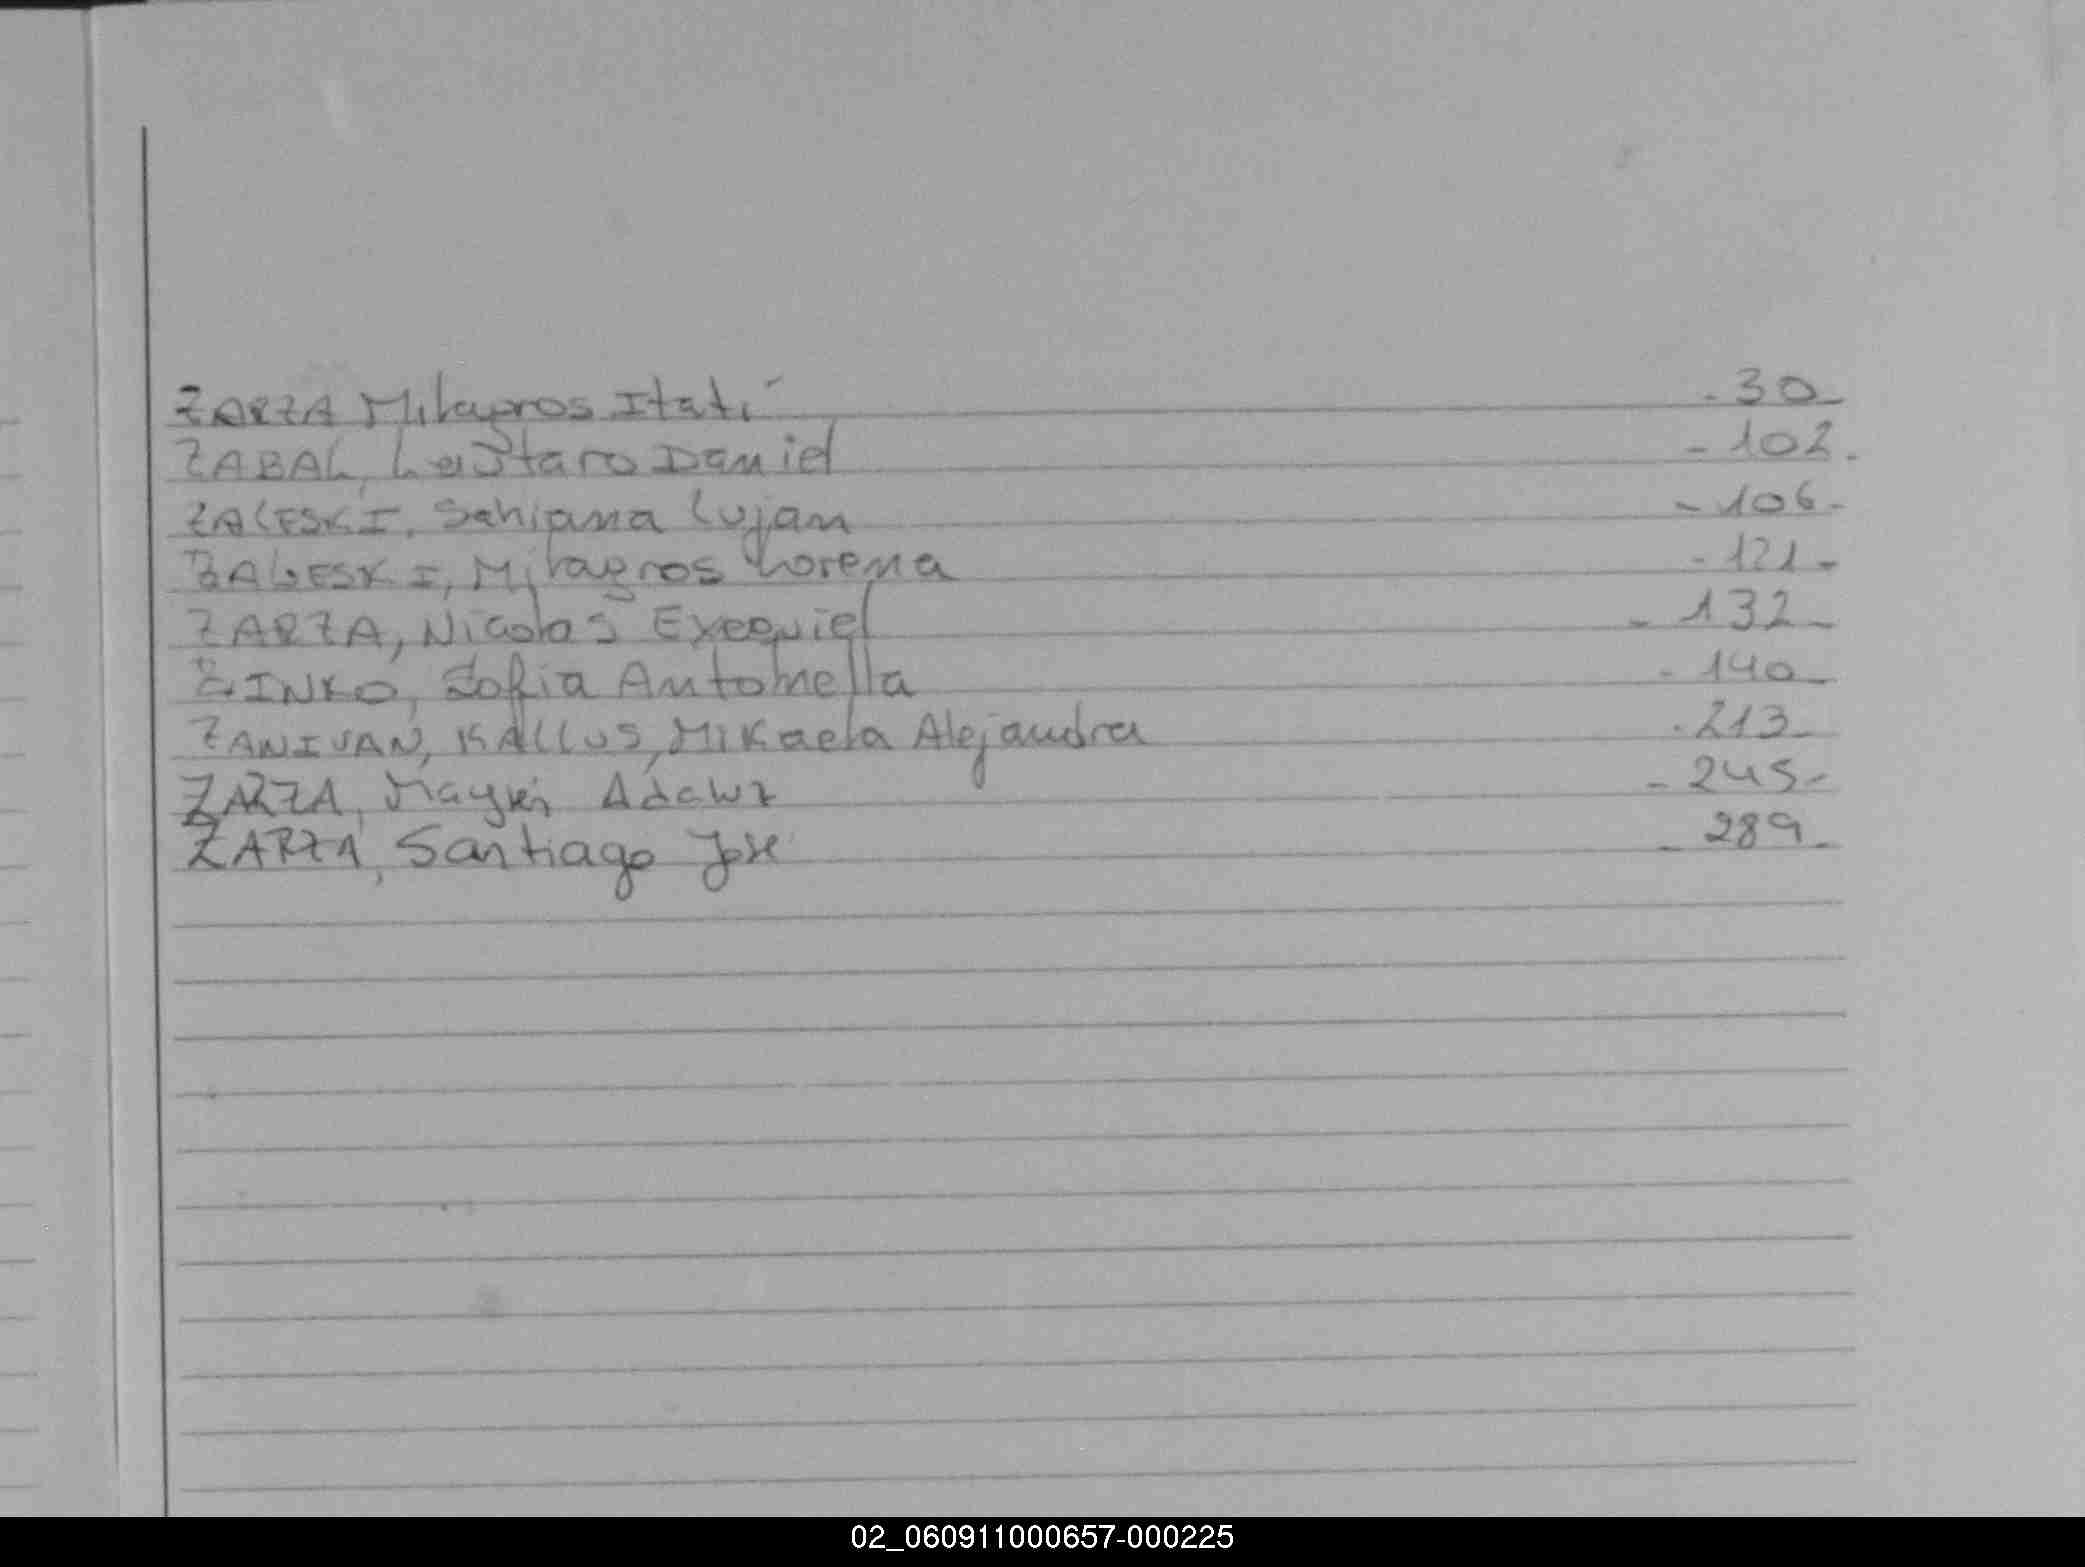 ZARZA Milagros Itatí - 30 -
ZABAL, Lautaro Daniel - 102 -
ZALESKI, Sahiana Lujan - 106 -
ZALESKI, Milagros Lorena - 121 -
ZARZA, Nicolas Exequiel - 132 -
ZINKO, Sofia Antonella - 140 -
ZANIVAN, KALLUS, Mikaela Alejandra - 213 -
ZARZA, - 245 -
ZARZA, Santiago Jose - 289 -
02_060911000657-000225